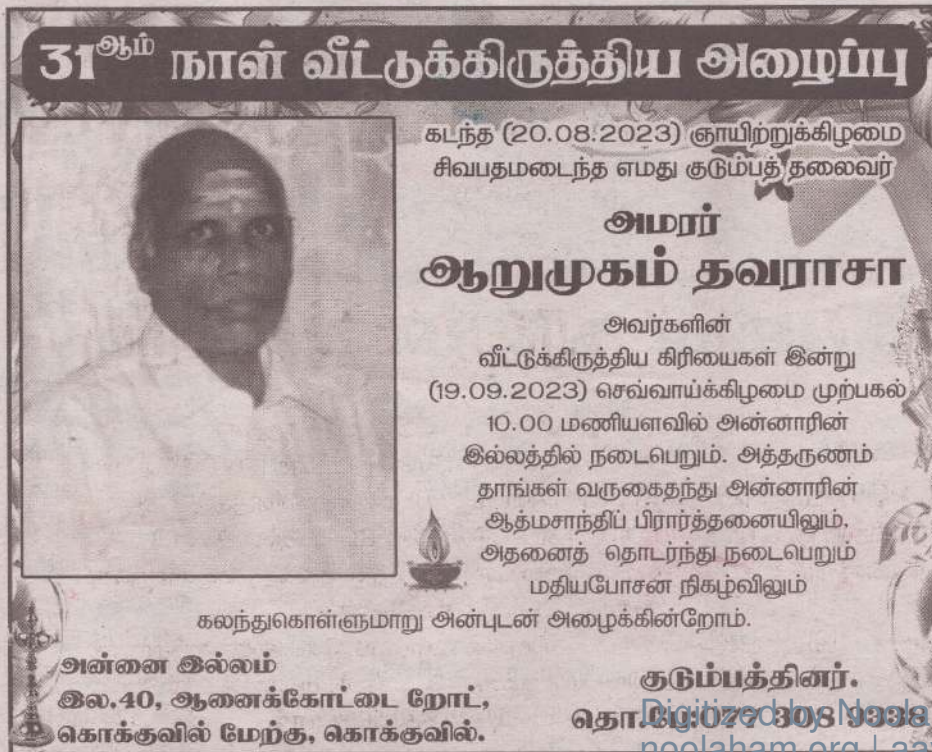 31ஆம் நாள் வீட்டுக்கிருத்திய அழைப்பு
கடந்த (20.08.2023) ஞாயிற்றுக்கிழமை
சிவபதமடைந்த எமது குடும்பத் தலைவர்
அமரர்
ஆறுமுகம் தவராசா
அவர்களின்
வீட்டுக்கிருத்திய கிரியைகள் இன்று
(19.09.2023) செவ்வாய்க்கிழமை முற்பகல்
10.00 மணியளவில் அன்னாரின்
இல்லத்தில் நடைபெறும். அத்தருணம்
தாங்கள் வருகைதந்து அன்னாரின்
ஆத்மசாந்திப் பிரார்த்தனையிலும்,
அதனைத் தொடர்ந்து நடைபெறும்
மதியபோசன நிகழ்விலும்
கலந்துகொள்ளுமாறு அன்புடன் அழைக்கின்றோம்.
அன்னை இல்லம்
இல.40, ஆனைக்கோட்டை றோட்,
கொக்குவில் மேற்கு, கொக்குவில்.
குடும்பத்தினர்.
தொ.பே:077 308 9338
Digitized by Noola
noolaham.org | aa